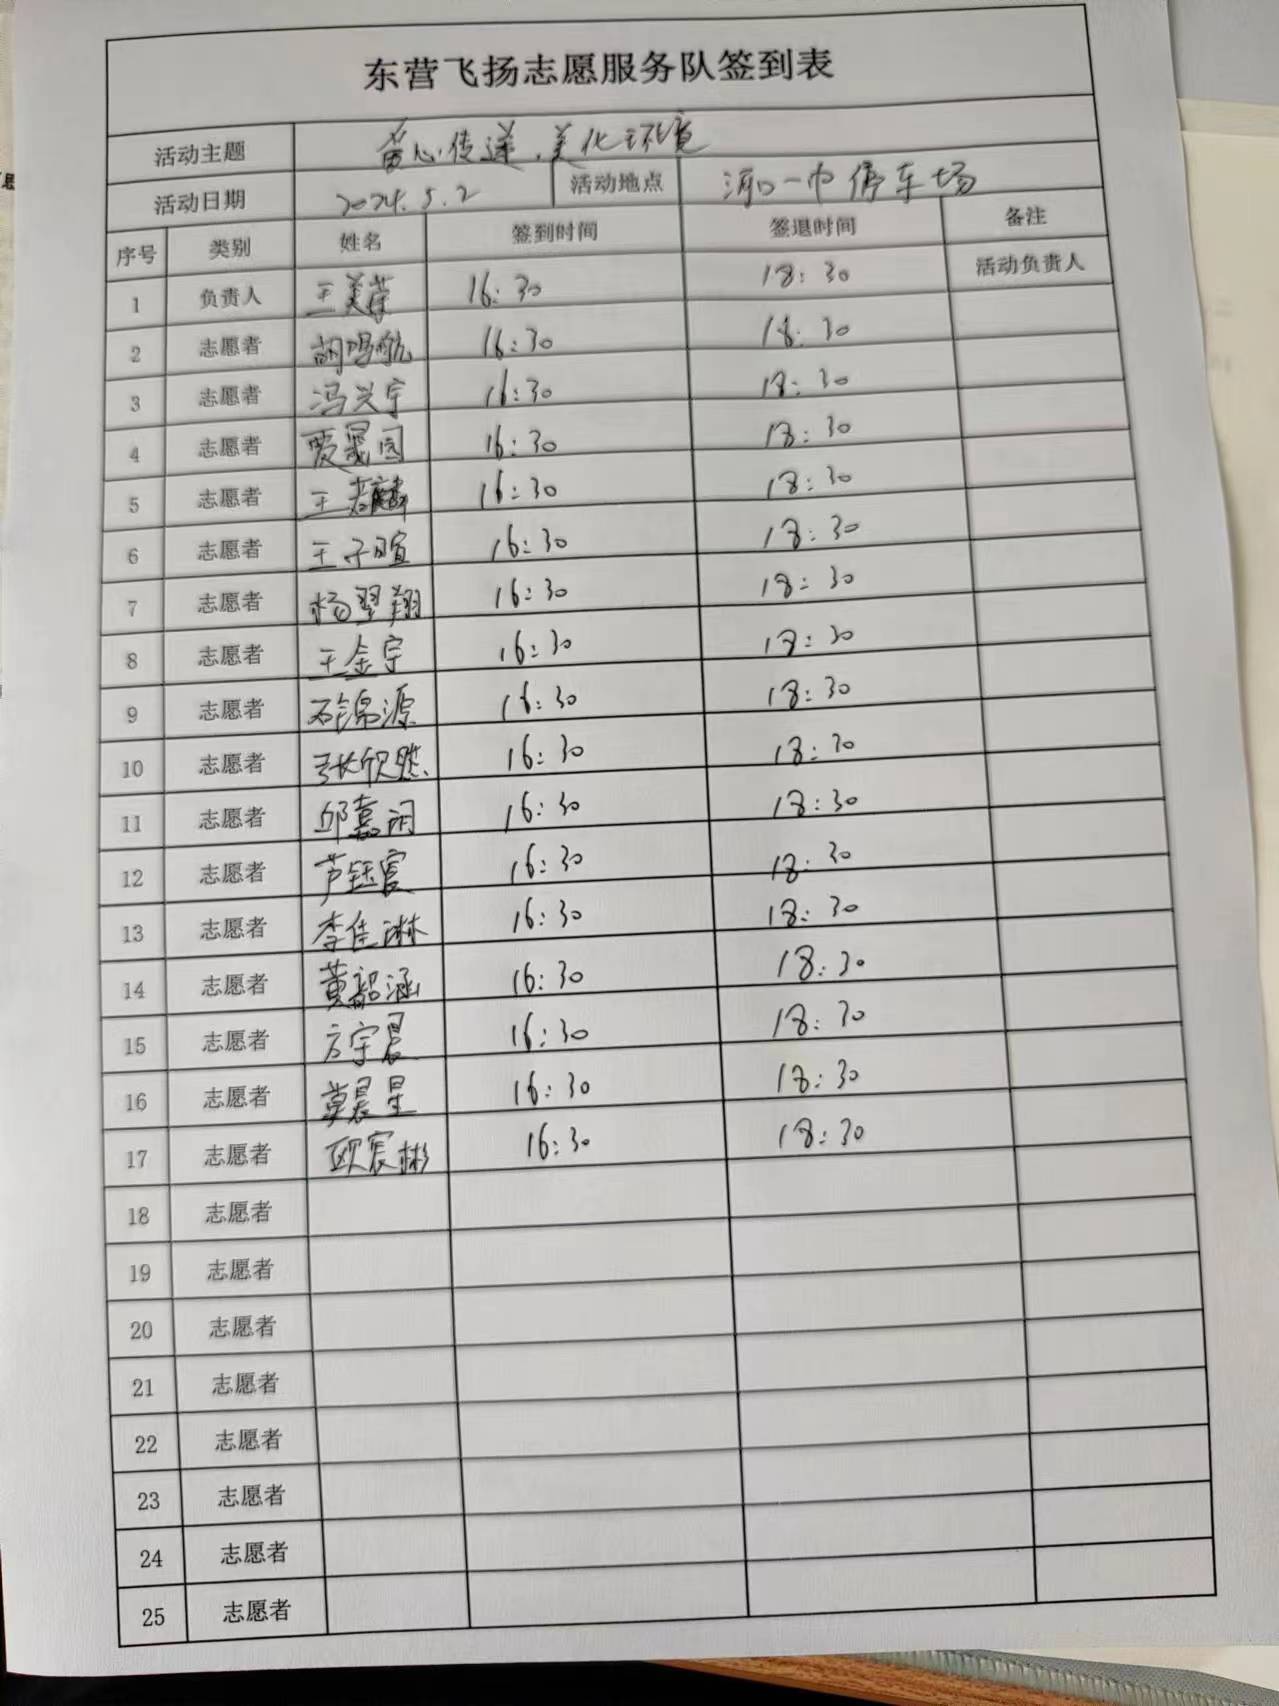 东营飞扬志愿服务队签到表
活动主题 爱心传递，美化环境
活动日期 2024.5.2 活动地点 河口一中停车场
序号 类别 姓名 签到时间 签退时间 备注
1 负责人 王美蓉 16:30 18:30 活动负责人
2 志愿者 胡鸣航 16:30 18:30
3 志愿者 冯兴宇 16:30 18:30
4 志愿者 16:30 18:30
5 志愿者 王若麟 16:30 18:30
6 志愿者 王子暄 16:30 18:30
7 志愿者 杨翌翔 16:30 18:30
8 志愿者 王金宇 16:30 18:30
9 志愿者 石锦源 16:30 18:30
10 志愿者 张欣然 16:30 18:30
11 志愿者 邱嘉润 16:30 18:30
12 志愿者 芦钰宸 16:30 18:30
13 志愿者 李佳琳 16:30 18:30
14 志愿者 黄韶涵 16:30 18:30
15 志愿者 方宇晨 16:30 18:30
16 志愿者 晨星 16:30 18:30
17 志愿者 欧宸彬 16:30 18:30
18 志愿者
19 志愿者
20 志愿者
21 志愿者
22 志愿者
23 志愿者
24 志愿者
25 志愿者